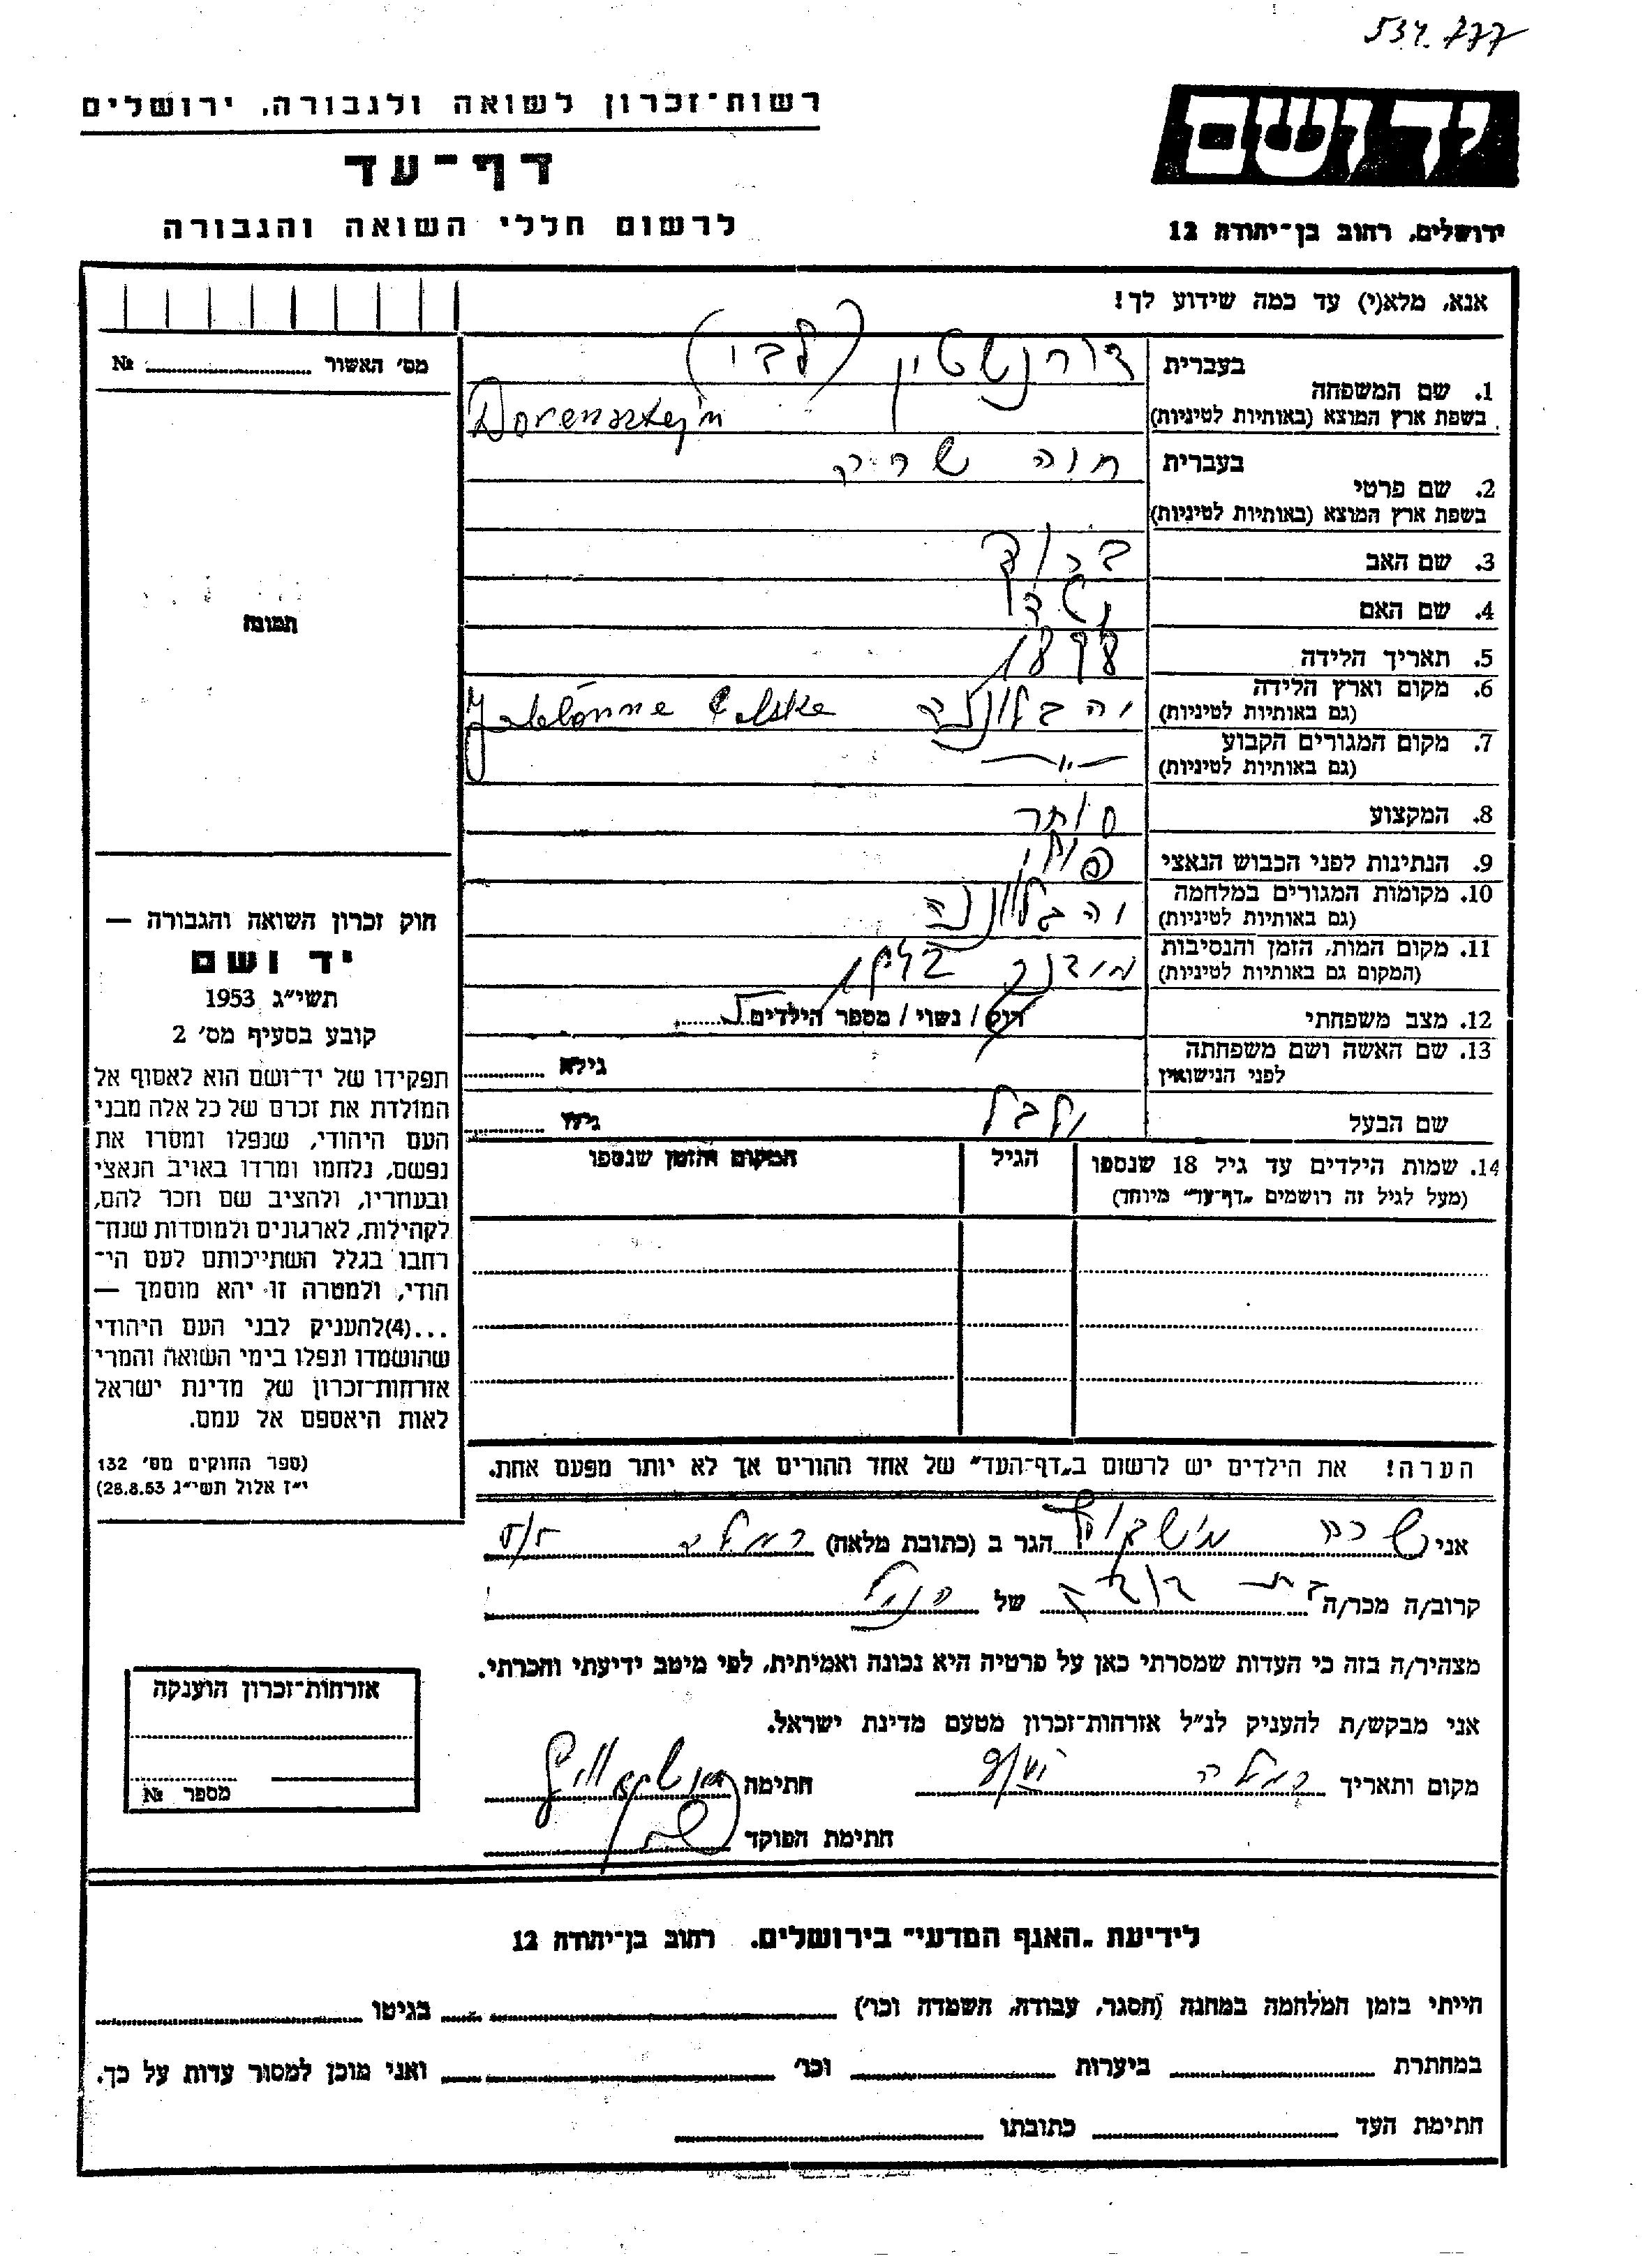 534.777
רשות־זכרון לשואה ולגבורה, ירושלים
דף־עד
לרשום חללי השואה והגבורה
יד ושם
ירושלים, רחוב בן־יהודה 12
אנא, מלא(י) עד כמה שידוע לך!
מס׳ האשור № 
תמונה
1. שם המשפחה
בעברית דורנשטיין (לבי)
בשפת ארץ המוצא (באותיות לטיניות) Dorensztejn
2. שם פרטי
בעברית חוה
בשפת ארץ המוצא (באותיות לטיניות)
3. שם האב ברוך
4. שם האם
5. תאריך הלידה
6. מקום וארץ הלידה
(גם באותיות לטיניות) Polska
7. מקום המגורים הקבוע
(גם באותיות לטיניות) —"—
8. המקצוע סוחר
9. הנתינות לפני הכבוש הנאצי
10. מקומות המגורים במלחמה
(גם באותיות לטיניות)
11. מקום המות, הזמן והנסיבות
(המקום גם באותיות לטיניות)
12. מצב משפחתי רוק / נשוי / מספר הילדים 5
13. שם האשה ושם משפחתה
לפני הנישואין גילה
שם הבעל גילו
14. שמות הילדים עד גיל 18 שנספו
(מעל לגיל זה רושמים „דף־עד״ מיוחד)
הגיל
המקום והזמן שנספו
הערה! את הילדים יש לרשום ב„דף־העד״ של אחד ההורים אך לא יותר מפעם אחת.
חוק זכרון השואה והגבורה —
יד ושם
תשי״ג 1953
קובע בסעיף מס׳ 2
תפקידו של יד־ושם הוא לאסוף אל
המולדת את זכרם של כל אלה מבני
העם היהודי, שנפלו ומסרו את
נפשם, נלחמו ומרדו באויב הנאצי
ובעוזריו, ולהציב שם וזכר להם,
לקהילות, לארגונים ולמוסדות שנח־
רחבו בגלל השתייכותם לעם הי־
הודי, ולמטרה זו יהא מוסמך —
...(4)להעניק לבני העם היהודי
שהושמדו ונפלו בימי השואה והמרי
אזרחות־זכרון של מדינת ישראל
לאות היאספם אל עמם.
(ספר החוקים מס׳ 132
י״ז אלול תשי״ג 28.8.53)
אני שרה הגר ב (כתובת מלאה) רמלה
קרוב/ה מכר/ה בת של הנ״ל
מצהיר/ה בזה כי העדות שמסרתי כאן על פרטיה היא נכונה ואמיתית, לפי מיטב ידיעתי והכרתי.
אני מבקש/ת להעניק לנ״ל אזרחות־זכרון מטעם מדינת ישראל.
מקום ותאריך רמלה חתימה
חתימת הפוקד
אזרחות־זכרון הוענקה
מספר №
לידיעת „האגף המדעי״ בירושלים. רחוב בן־יהודה 12
הייתי בזמן המלחמה במחנה (הסגר, עבודה, השמדה וכר׳) בגיטו
במחתרת ביערות וכר׳ ואני מוכן למסור עדות על כך.
חתימת העד כתובתו